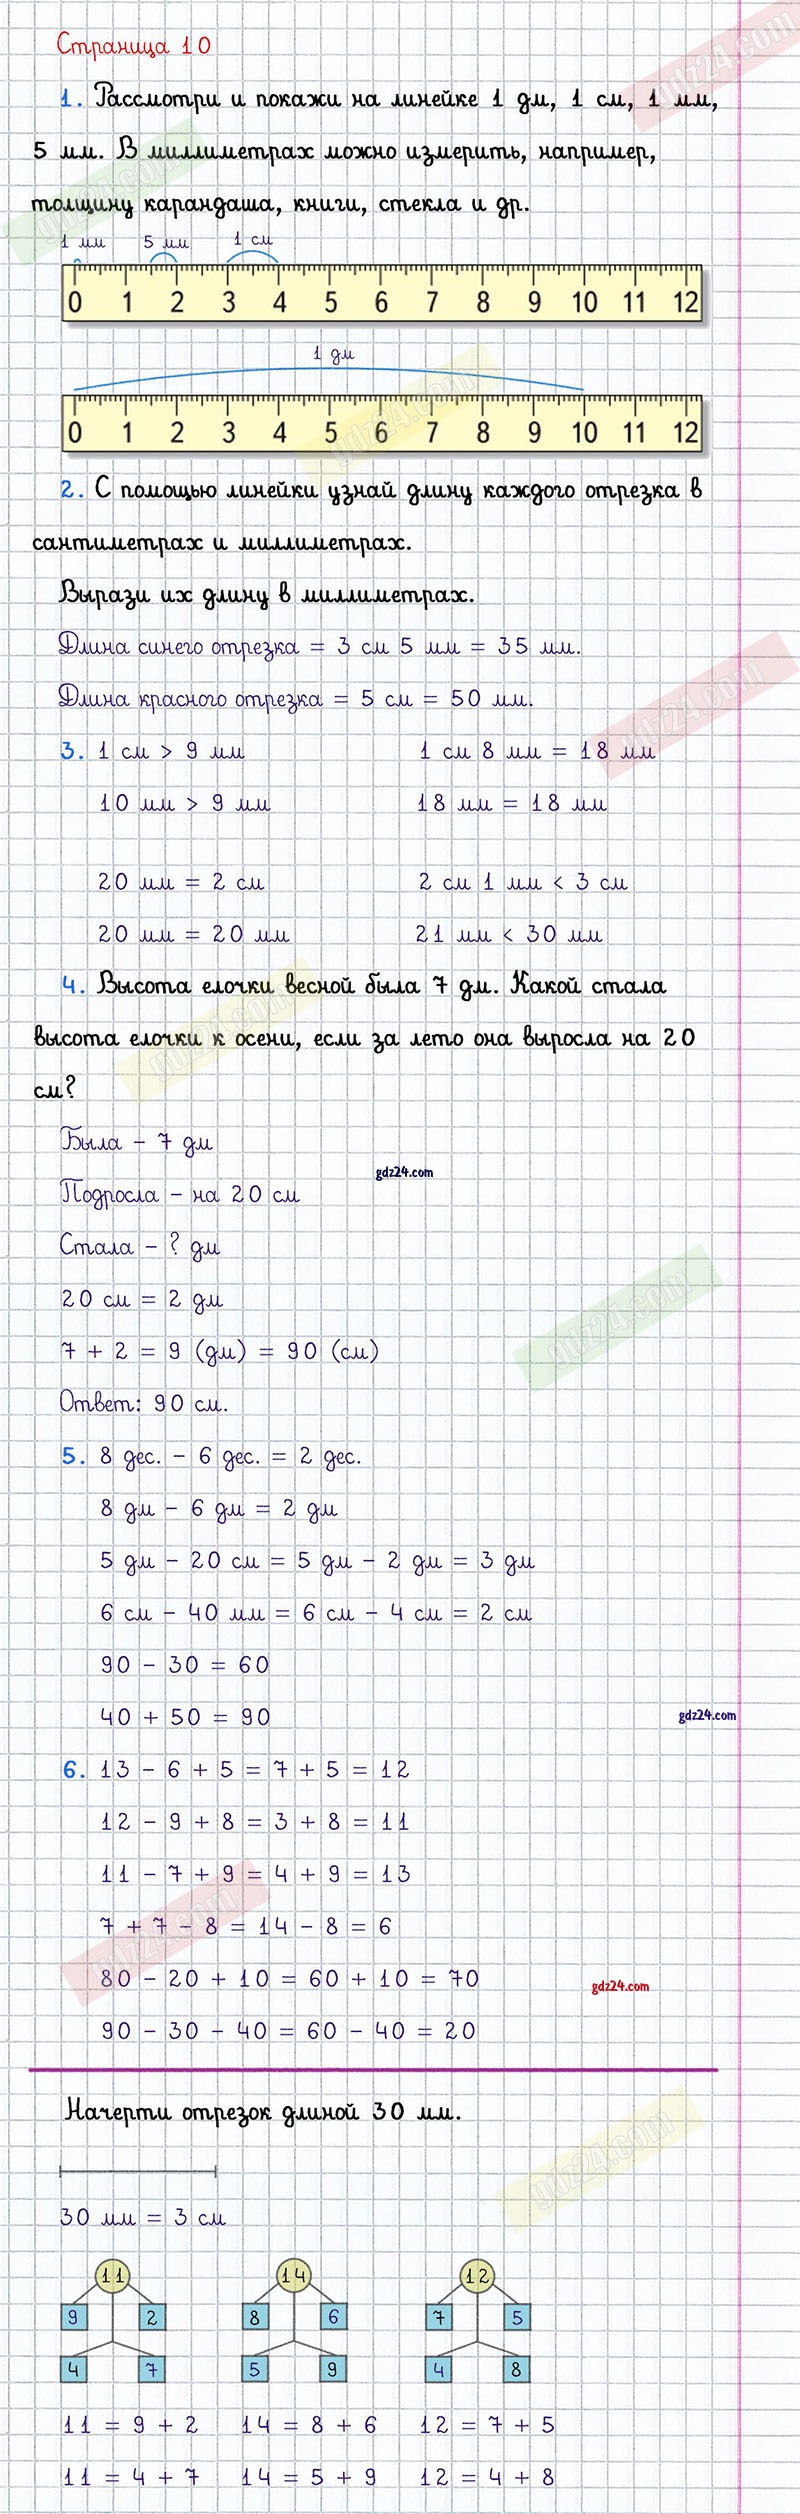 Страница 10
1. Рассмотри и покажи на линейке 1 дм, 1 см, 1 мм,
5 мм. В миллиметрах можно измерить, например,
толщину карандаша, книги, стекла и др.
1 мм 5 мм 1 см
0 1 2 3 4 5 6 7 8 9 10 11 12
1 дм
0 1 2 3 4 5 6 7 8 9 10 11 12
2. С помощью линейки узнай длину каждого отрезка в
сантиметрах и миллиметрах.
Вырази их длину в миллиметрах.
Длина синего отрезка = 3 см 5 мм = 35 мм.
Длина красного отрезка = 5 см = 50 мм.
3. 1 см > 9 мм 1 см 8 мм = 18 мм
10 мм > 9 мм 18 мм = 18 мм
20 мм = 2 см 2 см 1 мм < 3 см
20 мм = 20 мм 21 мм < 30 мм
4. Высота елочки весной была 7 дм. Какой стала
высота елочки к осени, если за лето она выросла на 20
см?
Была - 7 дм
gdz24.com
Подросла - на 20 см
Стала - ? дм
20 см = 2 дм
7 + 2 = 9 (дм) = 90 (см)
Ответ: 90 см.
5. 8 дес. - 6 дес. = 2 дес.
8 дм - 6 дм = 2 дм
5 дм - 20 см = 5 дм - 2 дм = 3 дм
6 см - 40 мм = 6 см - 4 см = 2 см
90 - 30 = 60
40 + 50 = 90
gdz24.com
6. 13 - 6 + 5 = 7 + 5 = 12
12 - 9 + 8 = 3 + 8 = 11
11 - 7 + 9 = 4 + 9 = 13
7 + 7 - 8 = 14 - 8 = 6
80 - 20 + 10 = 60 + 10 = 70
gdz24.com
90 - 30 - 40 = 60 - 40 = 20
Начерти отрезок длиной 30 мм.
30 мм = 3 см
11 14 12
9 2 8 6 7 5
4 7 5 9 4 8
11 = 9 + 2 14 = 8 + 6 12 = 7 + 5
11 = 4 + 7 14 = 5 + 9 12 = 4 + 8
gdz24.com
gdz24.com
gdz24.com
gdz24.com
gdz24.com
gdz24.com
gdz24.com
gdz24.com